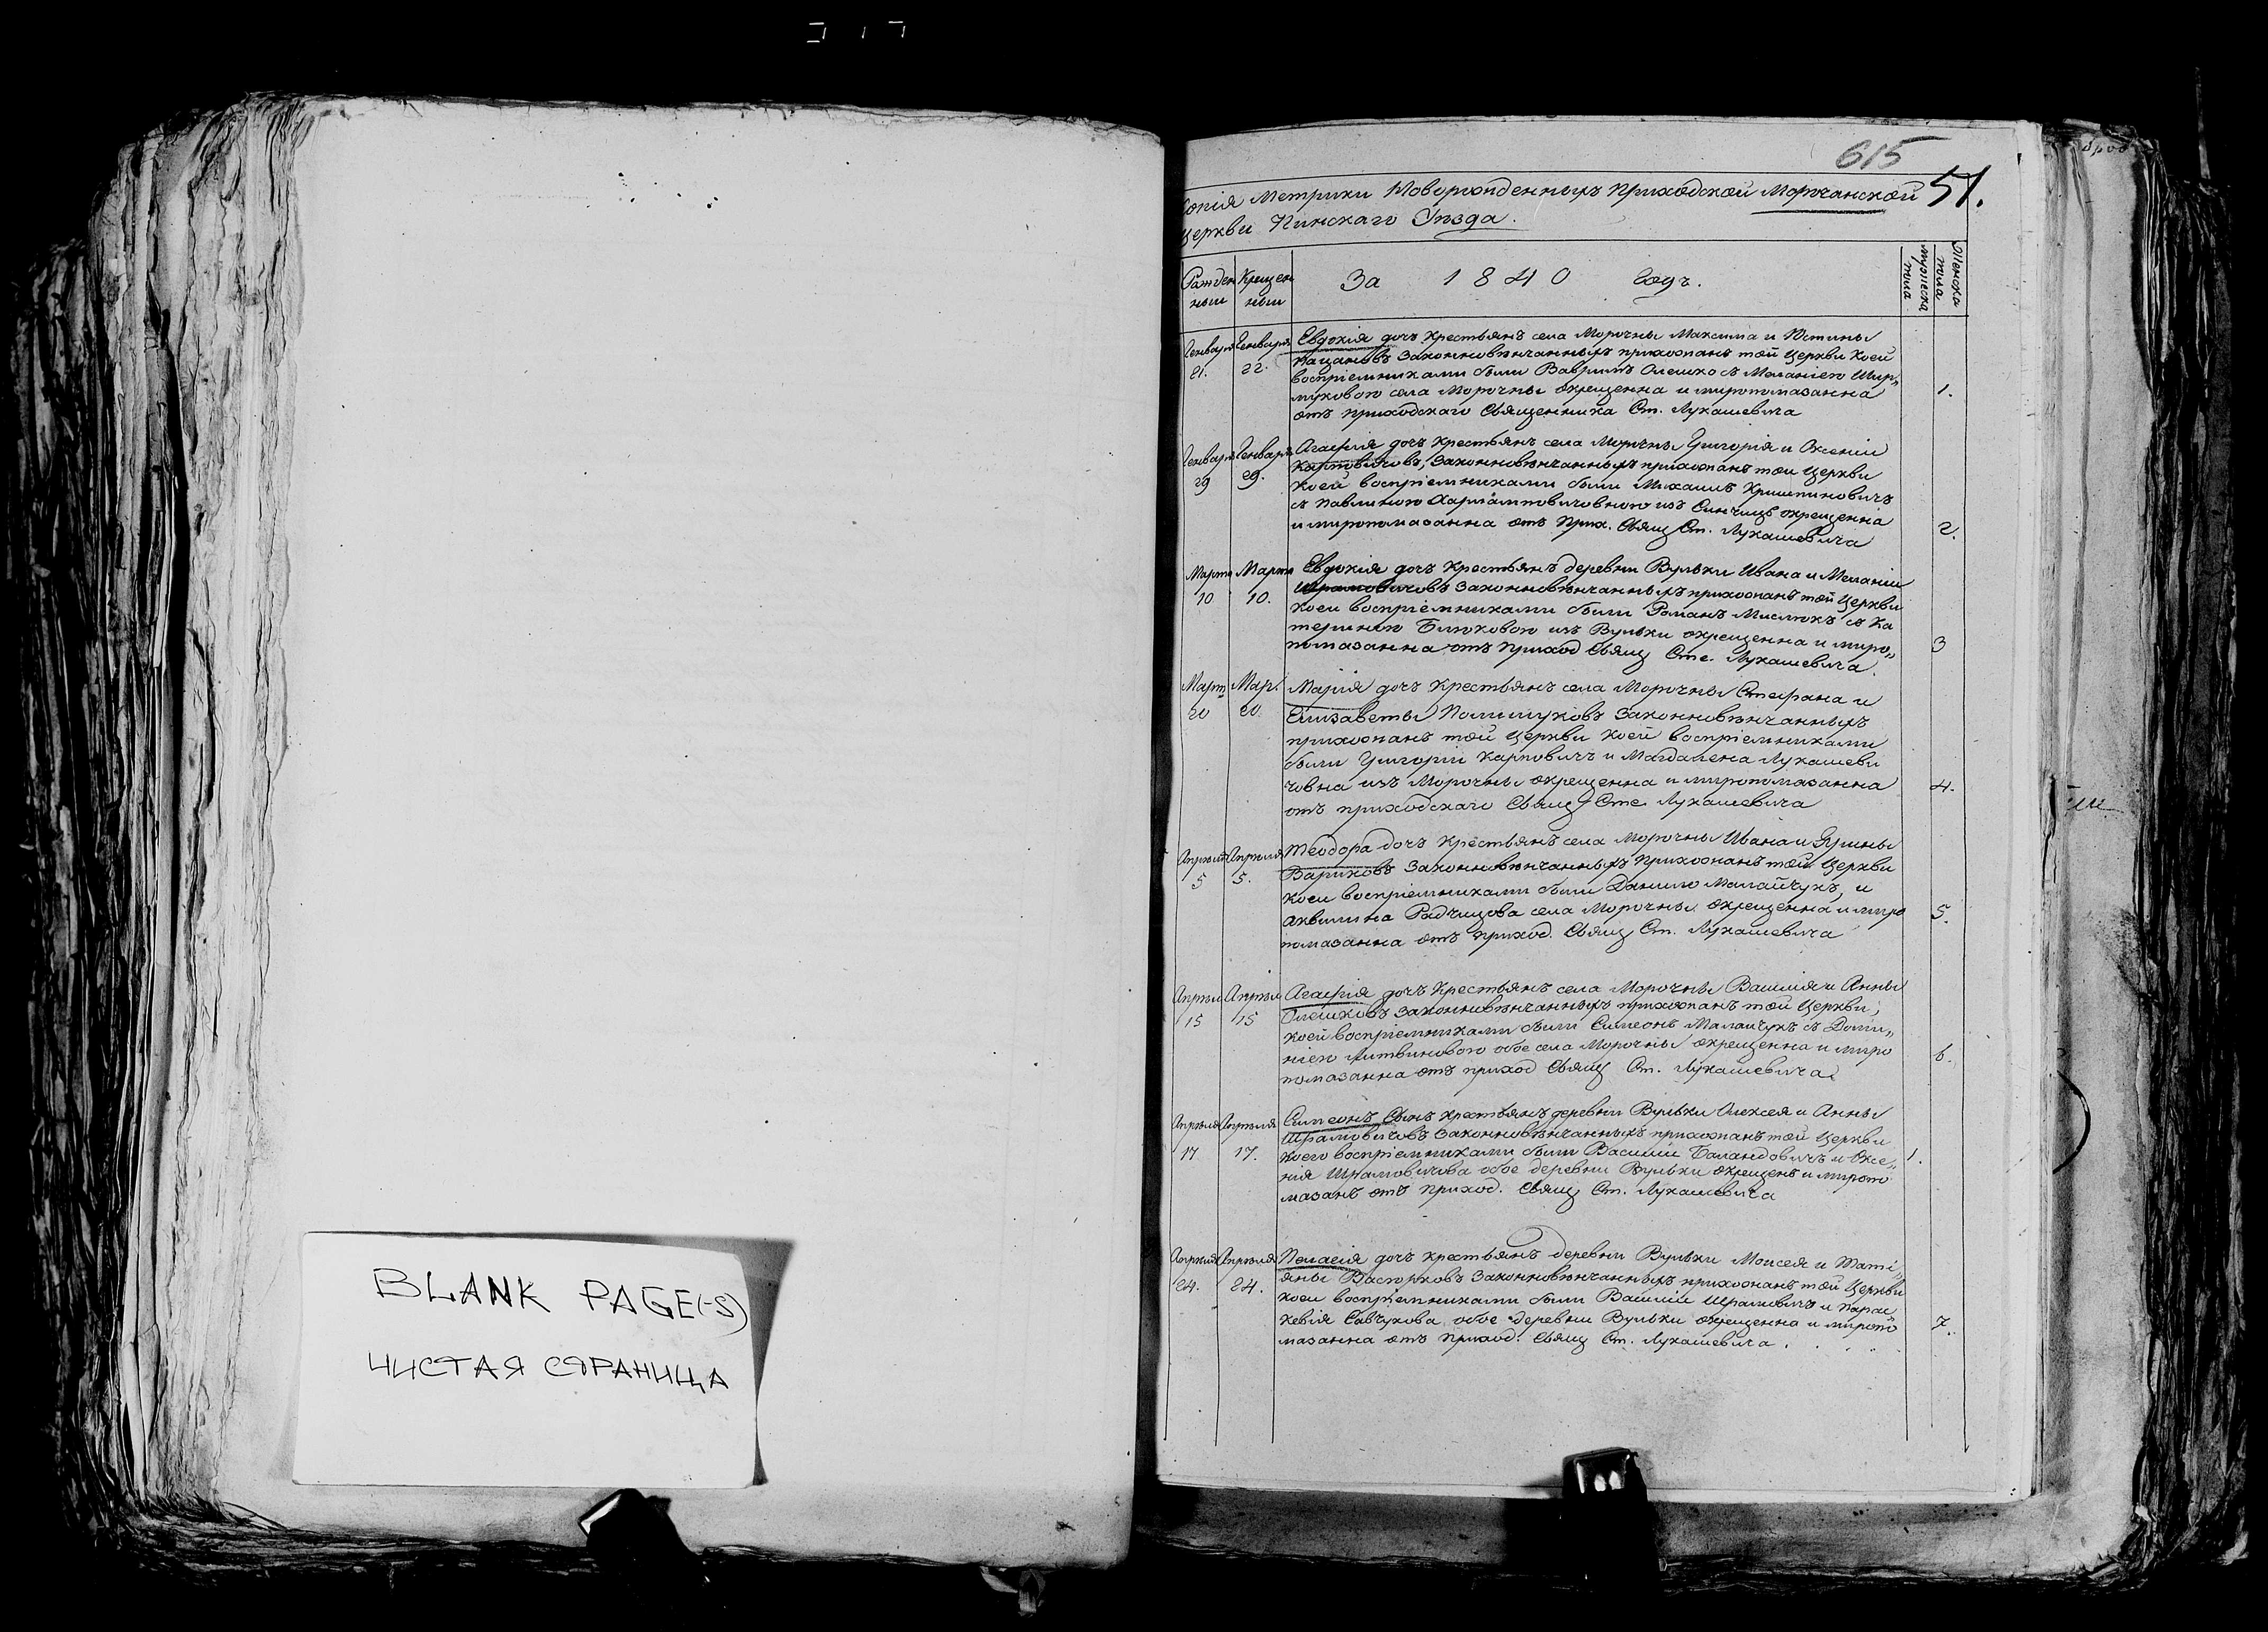 615
51.
Копія Метрики Новорожденныхъ Приходской Морочанской
Церкви Пинскаго Уѣзда.
Рожден
ныи
Крещен
ныи
За 1840 годъ.
мужеска
пола
Женска
пола
Генваря 21.
Генваря 22.
Евдокія дочь Крестьянъ села Морочны Максима и Устины
законновѣнчанныхъ прихожанъ той Церкви коей
воспріемниками были Олешко съ Меланіею
села Морочны окрещенна и миропомазанна
отъ приходскаго Священника Ст. Лукашевича
1.
Генваря 29
Генваря 29.
Агафія дочь Крестьянъ села Морочны Григорія и Ѯеніи
Карповичовъ, законновѣнчанныхъ прихожанъ той Церкви
коей воспріемниками были Михаилъ
съ Павлиною изъ окрещенна
и миропомазанна отъ Прих. Свящ Ст. Лукашевича
2.
Марта 10
Марта 10.
Евдокія дочь Крестьянъ деревни Вульки Ивана и Меланіи
Шрамовичовъ законновѣнчанныхъ прихожанъ той Церкви
коеи воспріемниками были Романъ Мислюкъ съ Ка
териною изъ Вульки окрещенна и миро„
помазанна отъ Приход Свящ Сте. Лукашевича.
3
Март 20
Мар. 20.
Марія дочь Крестьянъ села Морочны Стефана и
Елизаветы Полищуковъ законновѣнчанныхъ
прихожанъ той Церкви коей воспріемниками
были Григорій Карповичъ и Магдалена Лукашеви
човна изъ Морочны окрещенна и миропомазанна
отъ приходскаго Свящ Сте Лукашевича
4.
Апрѣля 5
Апрѣля 5.
Теодора дочь Крестьянъ села Морочны Ивана и Ярины
Вариховъ законновѣнчанныхъ Прихожанъ той Церкви
коеи воспріемниками были Данило Малайчукъ, и
Аквилина села Морочны окрещенна и миро
помазанна отъ приход. Свящ Ст. Лукашевича
5.
Апрѣля 15
Апрѣля 15
Агафія дочь Крестьянъ села Морочны Василія и Анны
Олешковъ законновѣнчанныхъ прихожанъ той Церкви,
коей воспріемниками были Симеонъ Малайчукъ съ Доми„
ніею Литвиновою обое села Морочны окрещенна и миро
помазанна отъ приход Свящ Ст. Лукашевича
6.
Апрѣля 17
Апрѣля 17.
Симеонъ Сынъ крестьянъ деревни Вульки Олексея и Анны
Шрамовичовъ законновѣнчанныхъ прихожанъ той Церкви
коего воспріемниками были Василій Баландовичъ и Ѯе„
нія Шрамовичова обое деревни Вульки окрещенъ и миропо
мазанъ отъ приход. Свящ Ст. Лукашевича
1.
Апрѣля 24.
Апрѣля 24.
Пелагія дочь крестьянъ деревни Вульки Моисея и Таті„
яны законновѣнчанныхъ прихожанъ той Церкви
коеи воспріемниками были Василій Шрамовичъ и Парас
кевія Савчукова обое деревни Вульки окрещенна и миропо
мазанна отъ Приход. Свящ Ст. Лукашевича.
7.
BLANK PAGE(-S)
ЧИСТАЯ СТРАНИЦА